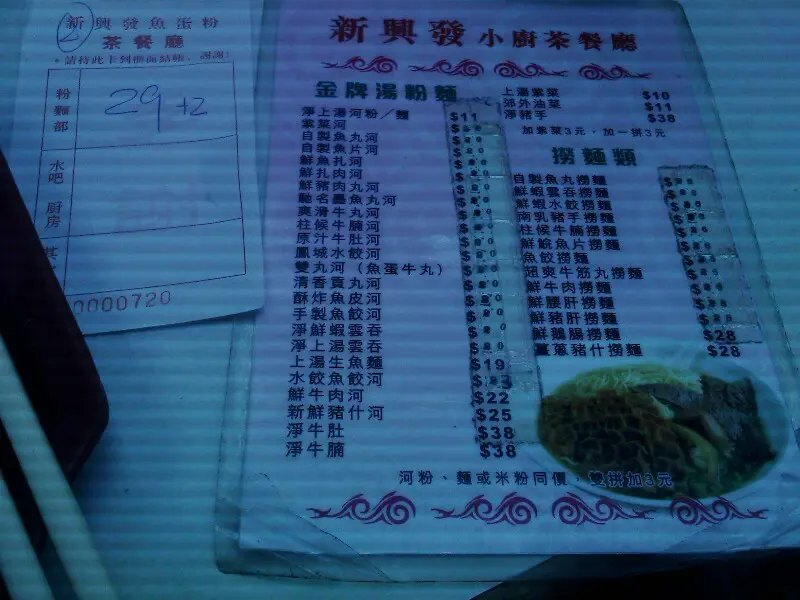 新興發魚蛋粉
茶餐廳
請待此卡到櫃面結帳，謝謝！
粉麵部
29 +2
水吧
廚房
0000720
新興發小廚茶餐廳
金牌湯粉麵
淨上湯河粉／麵 $11
紫菜河
自製魚丸河
自製魚片河
鮮魚扎河
鮮扎肉河
鮮豬肉丸河
馳名墨魚丸河
爽滑牛丸河
柱候牛腩河
原汁牛肚河
鳳城水餃河
雙丸河（魚蛋牛丸）
清香貢丸河
酥炸魚皮河
手製魚餃河
淨鮮蝦雲吞
淨上湯雲吞
上湯生魚麵 $19
水餃魚餃河
鮮牛肉河 $22
新鮮豬什河 $25
淨牛肚 $38
淨牛腩 $38
上湯紫菜 $10
郊外油菜 $11
淨豬手 $38
加紫菜3元，加一拼3元
撈麵類
自製魚丸撈麵
鮮蝦雲吞撈麵
鮮蝦水餃撈麵
南乳豬手撈麵
柱候牛腩撈麵
鮮鯇魚片撈麵
魚餃撈麵
超爽牛筋丸撈麵
鮮牛肉撈麵
鮮腰肝撈麵
鮮豬肝撈麵
鮮鵝腸撈麵 $28
薑蔥豬什撈麵 $28
河粉、麵或米粉同價，雙拼加3元